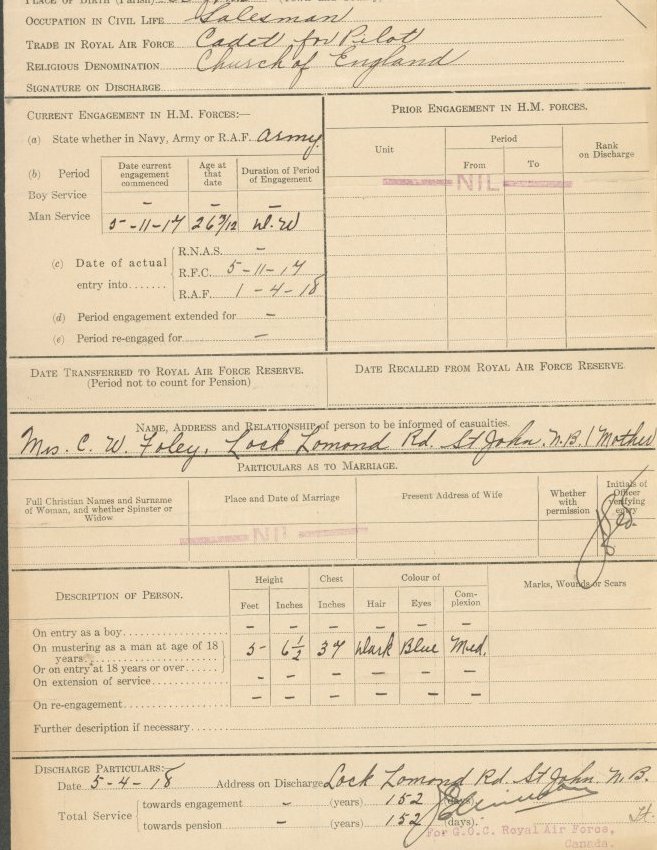 PLACE OF BIRTH (Parish)
OCCUPATION IN CIVIL LIFE Salesman
TRADE IN ROYAL AIR FORCE Cadet for Pilot
RELIGIOUS DENOMINATION Church of England
SIGNATURE ON DISCHARGE
CURRENT ENGAGEMENT IN H.M. FORCES:—
(a) State whether in Navy, Army or R.A.F. Army.
(b) Period
Date current engagement commenced
Age at that date
Duration of Period of Engagement
Boy Service — — —
Man Service 5-11-17 26 7/12 D. W
(c) Date of actual entry into
R.N.A.S. —
R.F.C. 5-11-17
R.A.F. 1-4-18
(d) Period engagement extended for —
(e) Period re-engaged for —
PRIOR ENGAGEMENT IN H.M. FORCES.
Unit
Period
From To
Rank on Discharge
NIL
DATE TRANSFERRED TO ROYAL AIR FORCE RESERVE.
(Period not to count for Pension)
DATE RECALLED FROM ROYAL AIR FORCE RESERVE.
NAME, ADDRESS and RELATIONSHIP of person to be informed of casualties.
Mrs. C. W. Foley, Lock Lomond Rd. St John. N.B. (Mother
PARTICULARS AS TO MARRIAGE.
Full Christian Names and Surname of Woman, and whether Spinster or Widow
Place and Date of Marriage
Present Address of Wife
Whether with permission
Initials of Officer verifying entry
NIL
DESCRIPTION OF PERSON.
Height Chest Colour of
Feet Inches Inches Hair Eyes Complexion
Marks, Wounds or Scars
On entry as a boy — — — — — —
On mustering as a man at age of 18 years 5- 6½ 37 Dark Blue Med.
Or on entry at 18 years or over
On extension of service — — — — — —
On re-engagement — — — — — —
Further description if necessary
DISCHARGE PARTICULARS:—
Date 5-4-18 Address on Discharge Lock Lomond Rd. St John. N.B.
Total Service
towards engagement — (years) 152 (days).
towards pension — (years) 152 (days).
Lt.
For G.O.C. Royal Air Force,
Canada.